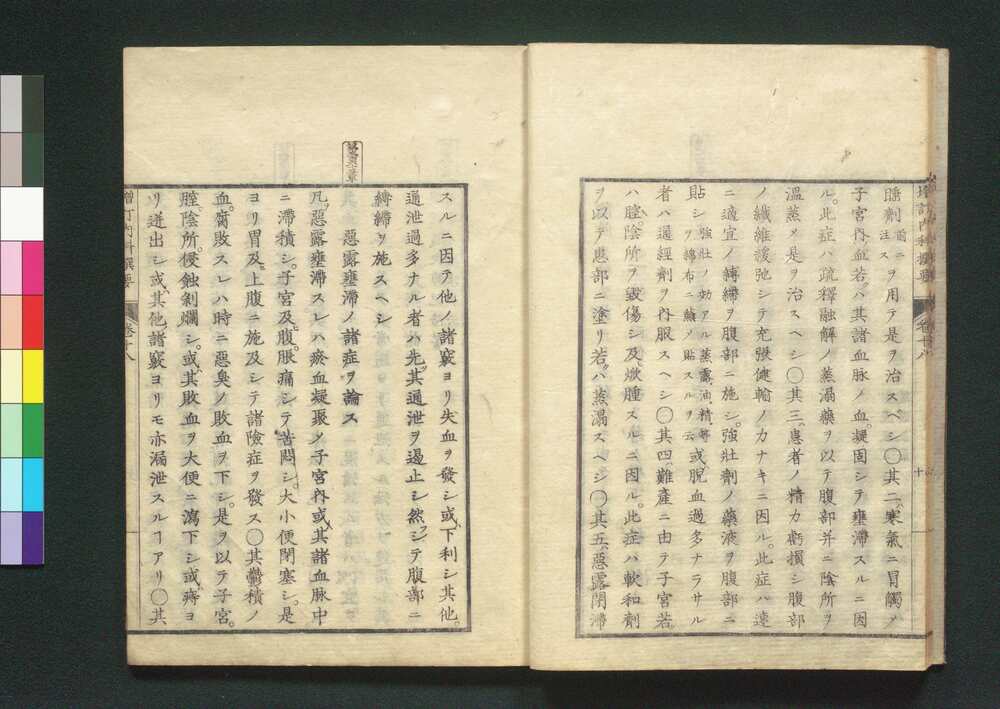 腫劑前ニ注スヲ用テ是ヲ治スベシ〇其二、寒氣ニ冒觸メ
子宮内血若ハ其諸血脉ノ血。凝固シテ壅滯スルニ因
ル。此症ハ疏釋融解ノ蒸漏藥ヲ以テ腹部并ニ陰所ヲ
溫蒸メ是ヲ治スヘシ〇其三、患者ノ精力虧損シ腹部
ノ纎維緩弛シテ充張健輸ノ力ナキニ因ル。此症ハ速
ニ適宜ノ縛緳ヲ腹部ニ施シ。強壯劑ノ藥液ヲ腹部ニ
貼シ強壯ノ効アル蒸露、油、精、等ヲ綿布ニ蘸メ貼スルヲ云或脫血過多ナラサル
者ハ通經劑ヲ内服スヘシ〇其四、難產ニ由テ子宮若
ハ膣、陰所ヲ毀傷シ及焮腫スルニ因ル。此症ハ軟和劑
ヲ以テ患部ニ塗リ若。ハ蒸漏スヘシ〇其五、惡露閉滯
增訂内科撰要
卷十八
十
スルニ因テ他ノ諸竅ヨリ失血ヲ發シ或下利シ其他。
通泄過多ナル者ハ先。其通泄ヲ遏止シ然シテ腹部ニ
縛緳ヲ施スヘシ
惡露壅滯ノ諸症ヲ論ス
凡。惡露壅滯スレハ瘀血凝聚ノ子宮内或其諸血脉中
ニ滯積シ。子宮及腹。脹痛シテ苦悶シ。大小便閉塞シ。是
ヨリ胃及。上腹ニ施及シテ諸險症ヲ發ス〇其鬱積ノ
血。腐敗スレハ時ニ惡臭ノ敗血ヲ下シ。是ヲ以テ子宮。
膣、陰所。侵蝕剝爛シ。或其敗血ヲ大便ニ瀉下シ或痔ヨ
リ迸出シ或其他諸竅ヨリモ亦漏泄スルヿアリ〇其
增訂内科撰要
卷十八